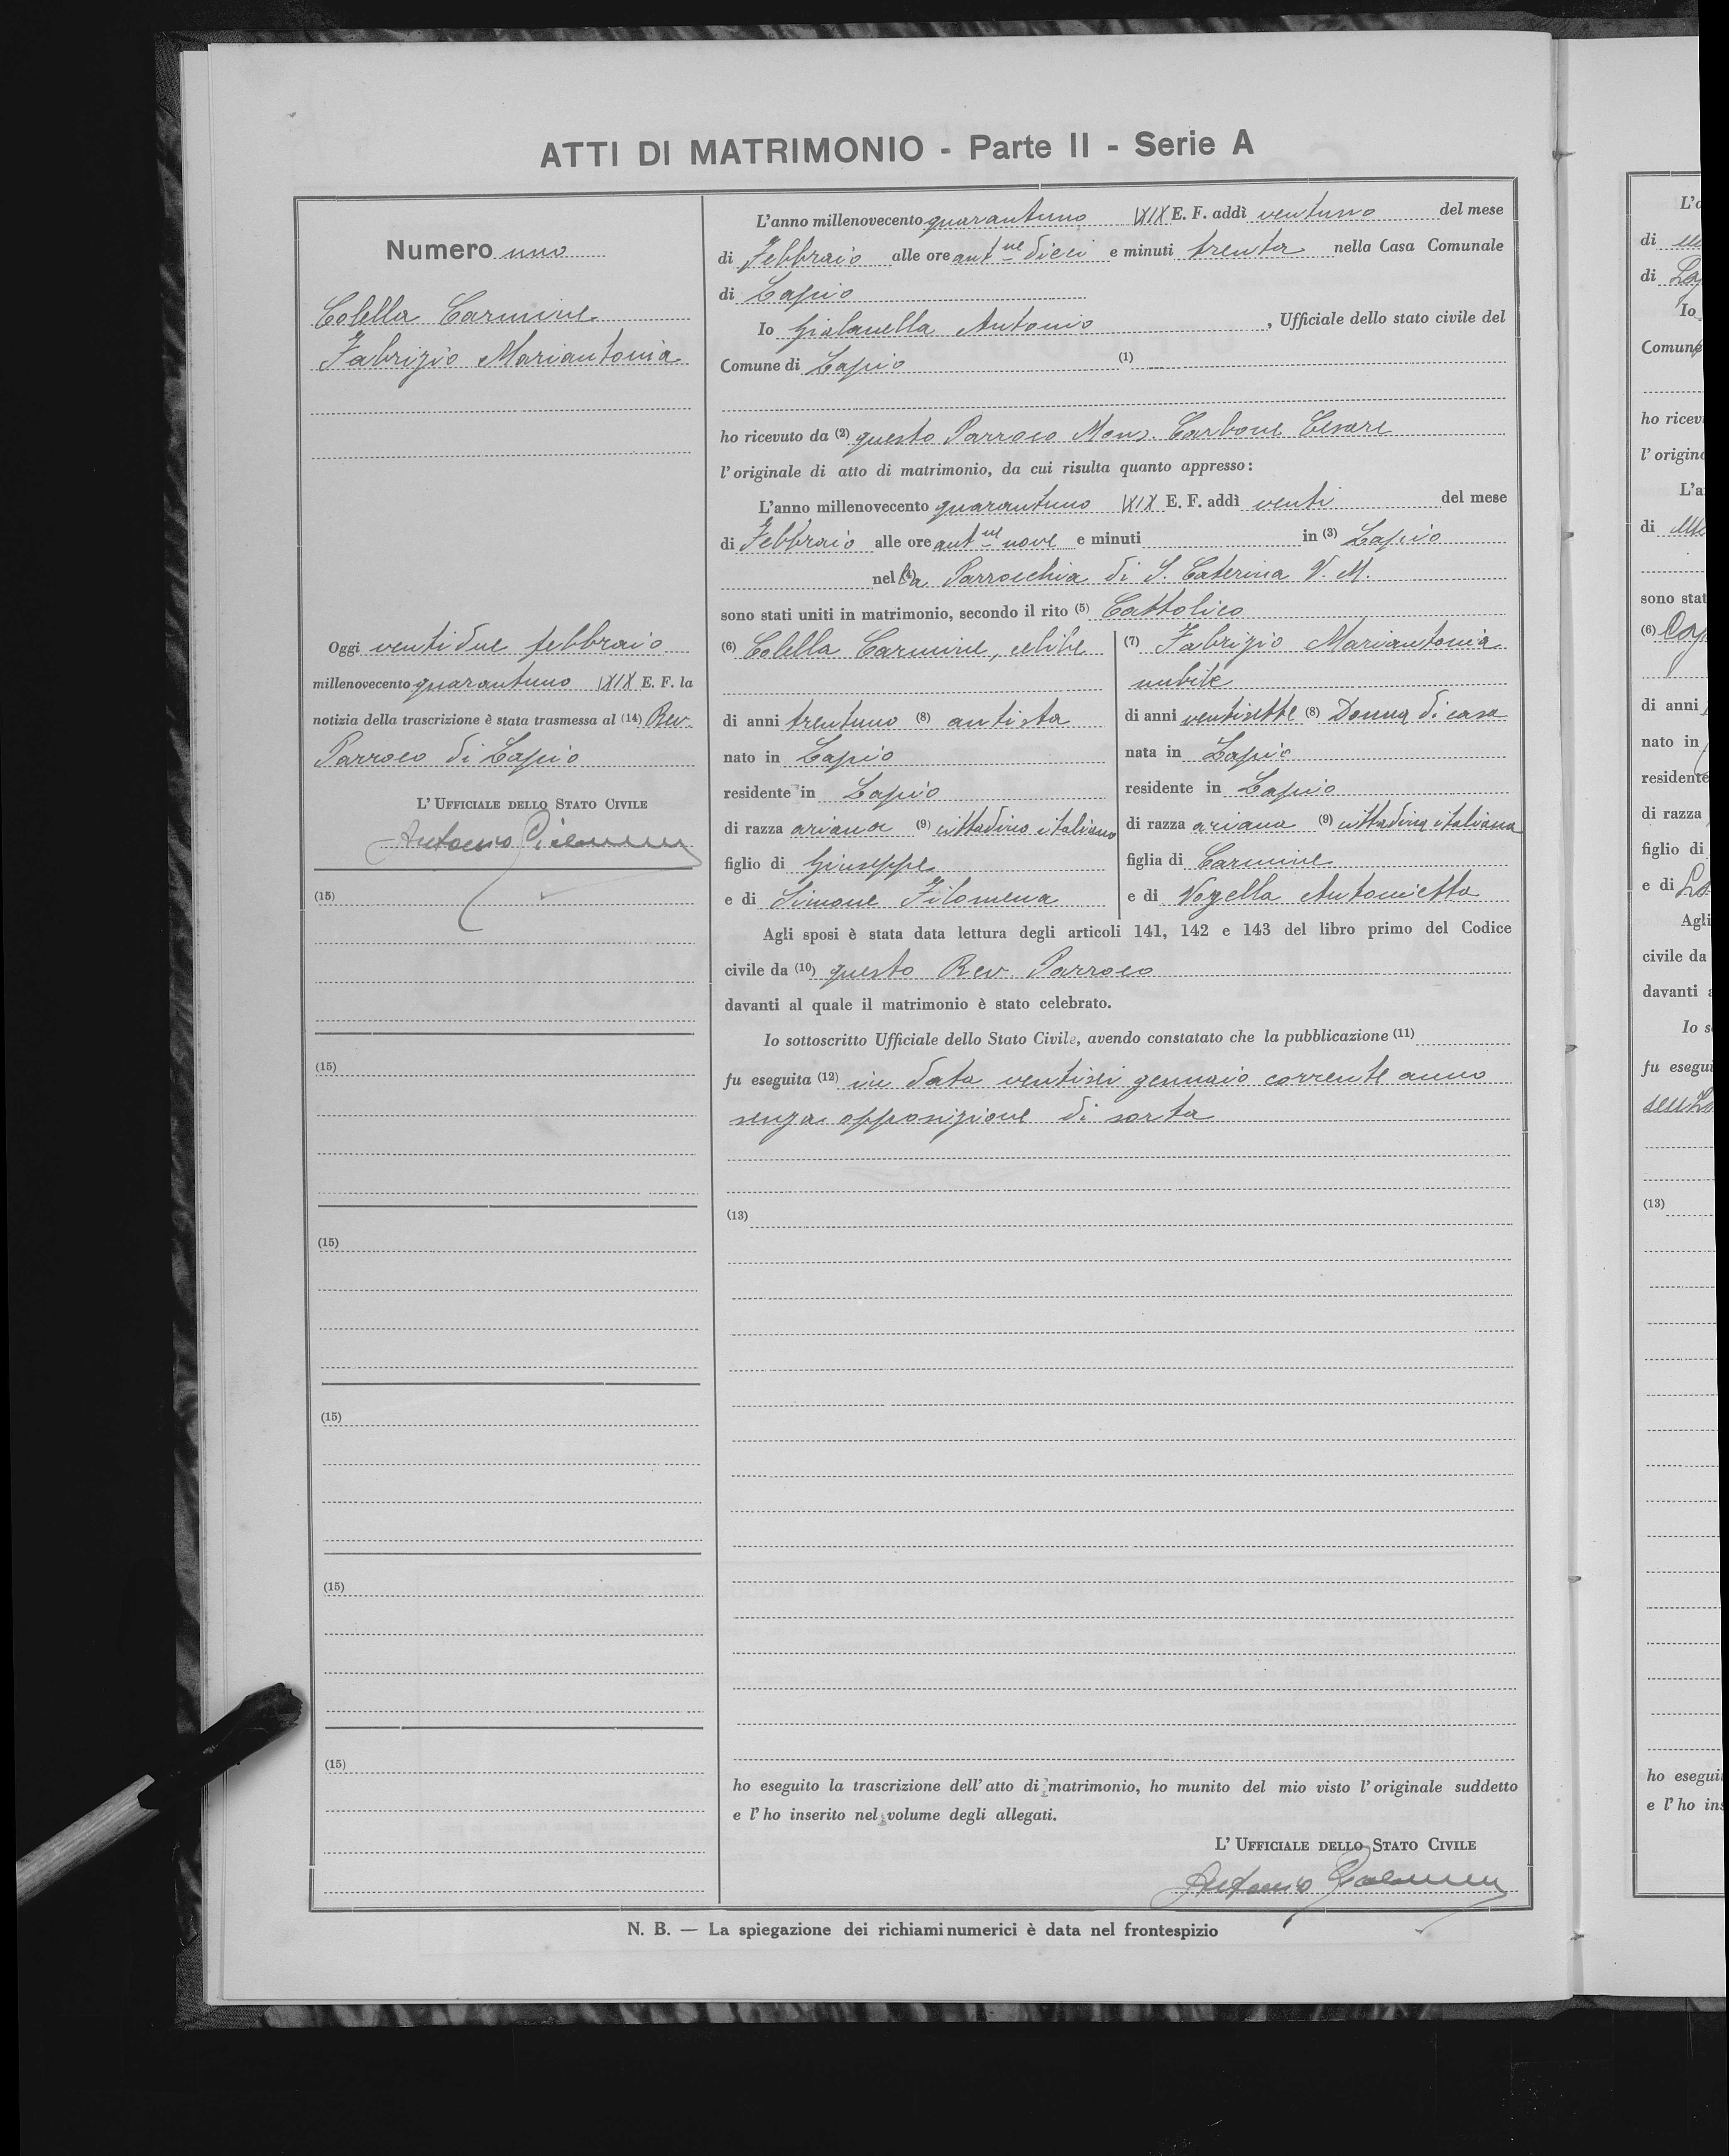 ATTI DI MATRIMONIO - Parte II - Serie A
Numero uno
Colella Carmine
Fabrizio Mariantonia
Oggi ventidue febbraio
millenovecento quarantuno XIX E. F. la
notizia della trascrizione è stata trasmessa al (14) Rev.
Parroco di Lapio
L' UFFICIALE DELLO STATO CIVILE
Antonio
(15)
(15)
(15)
(15)
(15)
(15)
L'anno millenovecento quarantuno XIX E. F. addì ventuno del mese
di Febbraio alle ore ant.ne dieci e minuti trenta nella Casa Comunale
di Lapio
Io Gialanella Antonio, Ufficiale dello stato civile del
Comune di Lapio (1)
ho ricevuto da (2) questo Parroco Mons. Carbone Cesare
l'originale di atto di matrimonio, da cui risulta quanto appresso:
L'anno millenovecento quarantuno XIX E. F. addì venti del mese
di Febbraio alle ore ant.ne nove e minuti in (3) Lapio
nella Parrocchia di S. Caterina V. M.
sono stati uniti in matrimonio, secondo il rito (5) Cattolico
(6) Colella Carmine, celibe
di anni trentuno (8) autista
nato in Lapio
residente in Lapio
di razza ariana (9) cittadino italiano
figlio di Giuseppe
e di Simone Filomena
(7) Fabrizio Mariantonia
nubile
di anni ventisette (8) Donna di casa
nata in Lapio
residente in Lapio
di razza ariana (9) cittadina italiana
figlia di Carmine
e di Vozella Antonietta
Agli sposi è stata data lettura degli articoli 141, 142 e 143 del libro primo del Codice
civile da (10) questo Rev. Parroco
davanti al quale il matrimonio è stato celebrato.
Io sottoscritto Ufficiale dello Stato Civile, avendo constatato che la pubblicazione (11)
fu eseguita (12) in data ventisei gennaio corrente anno
senza opposizione di sorta
(13)
ho eseguito la trascrizione dell'atto di matrimonio, ho munito del mio visto l'originale suddetto
e l'ho inserito nel volume degli allegati.
L' UFFICIALE DELLO STATO CIVILE
Antonio
N. B. — La spiegazione dei richiami numerici è data nel frontespizio
di
di
Io
Comune
ho ricev
l'origina
di
sono stat
(6)
di anni
nato in
residente
di razza
figlio di
e di
Agli
civile da
davanti
Io s
fu esegui
(13)
ho esegui
e l'ho ins